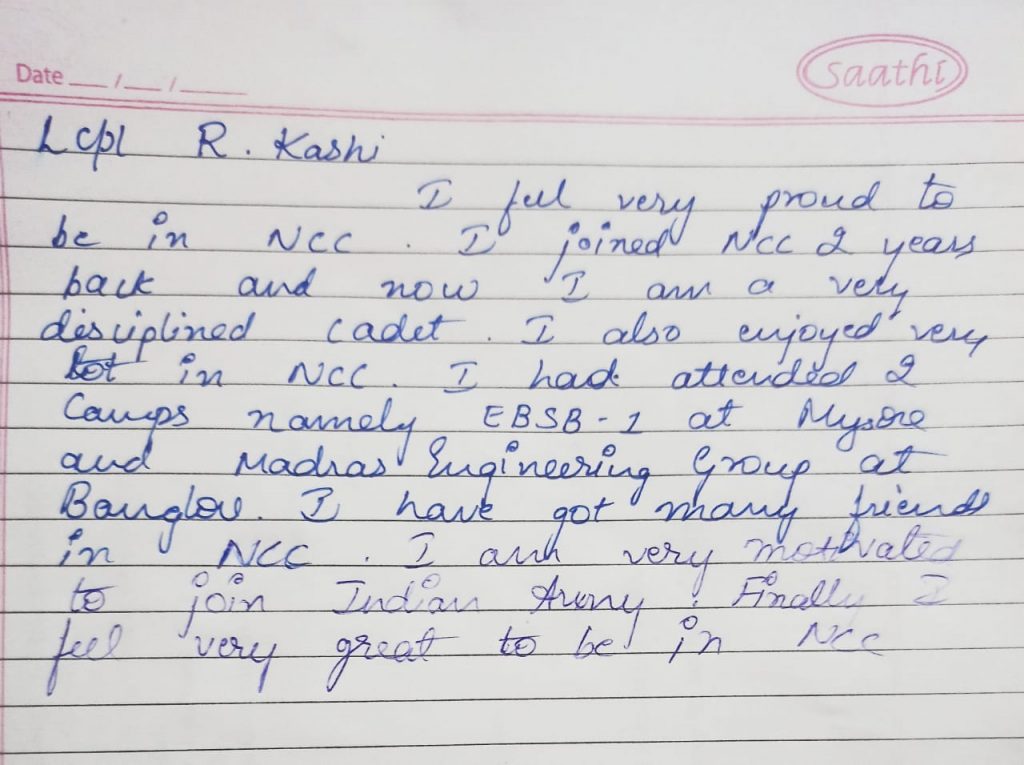 Date __/__/____
Saathi
Lcpl R. Kashi
I feel very proud to
be in NCC. I joined NCC 2 years
back and now I am a very
disciplined cadet. I also enjoyed very
lot in NCC. I had attended 2
Camps namely EBSB-1 at Mysore
and Madras Engineering Group at
Banglore. I have got many friends
in NCC. I am very motivated
to join Indian Army. Finally I
feel very great to be in NCC